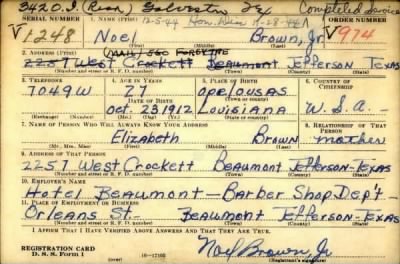 3420. I. (Rear) Galveston Tex Completed service
SERIAL NUMBER 1. NAME (Print) 12-5-44 Hon. Dis. 9-28-44 ORDER NUMBER
V 1248 Noel Brown, Jr V 974
2. ADDRESS (Print) (MAIL) 560 FORSYTHE
2257 West Crockett Beaumont Jefferson Texas
(Number and street or R. F. D. number) (Town) (County) (State)
3. TELEPHONE 4. AGE IN YEARS 5. PLACE OF BIRTH 6. COUNTRY OF CITIZENSHIP
7049W 27 Opelousas
DATE OF BIRTH (Town or county)
Oct. 23, 1912 Louisiana U.S.A-
(Exchange) (Number) (Mo.) (Day) (Yr.) (State or country)
7. NAME OF PERSON WHO WILL ALWAYS KNOW YOUR ADDRESS 8. RELATIONSHIP OF THAT PERSON
Elizabeth Brown mother
(Mr., Mrs., Miss) (First) (Middle) (Last)
9. ADDRESS OF THAT PERSON
2257 West Crockett Beaumont Jefferson-Texas
(Number and street or R. F. D. number) (Town) (County) (State)
10. EMPLOYER'S NAME
Hotel Beaumont- Barber Shop Dept-
11. PLACE OF EMPLOYMENT OR BUSINESS
Orleans St- Beaumont Jefferson-Texas
(Number and street or R. F. D. number) (Town) (County) (State)
I AFFIRM THAT I HAVE VERIFIED ABOVE ANSWERS AND THAT THEY ARE TRUE.
REGISTRATION CARD
D. S. S. Form 1 16-17105 Noel Brown Jr
(Registrant's signature)